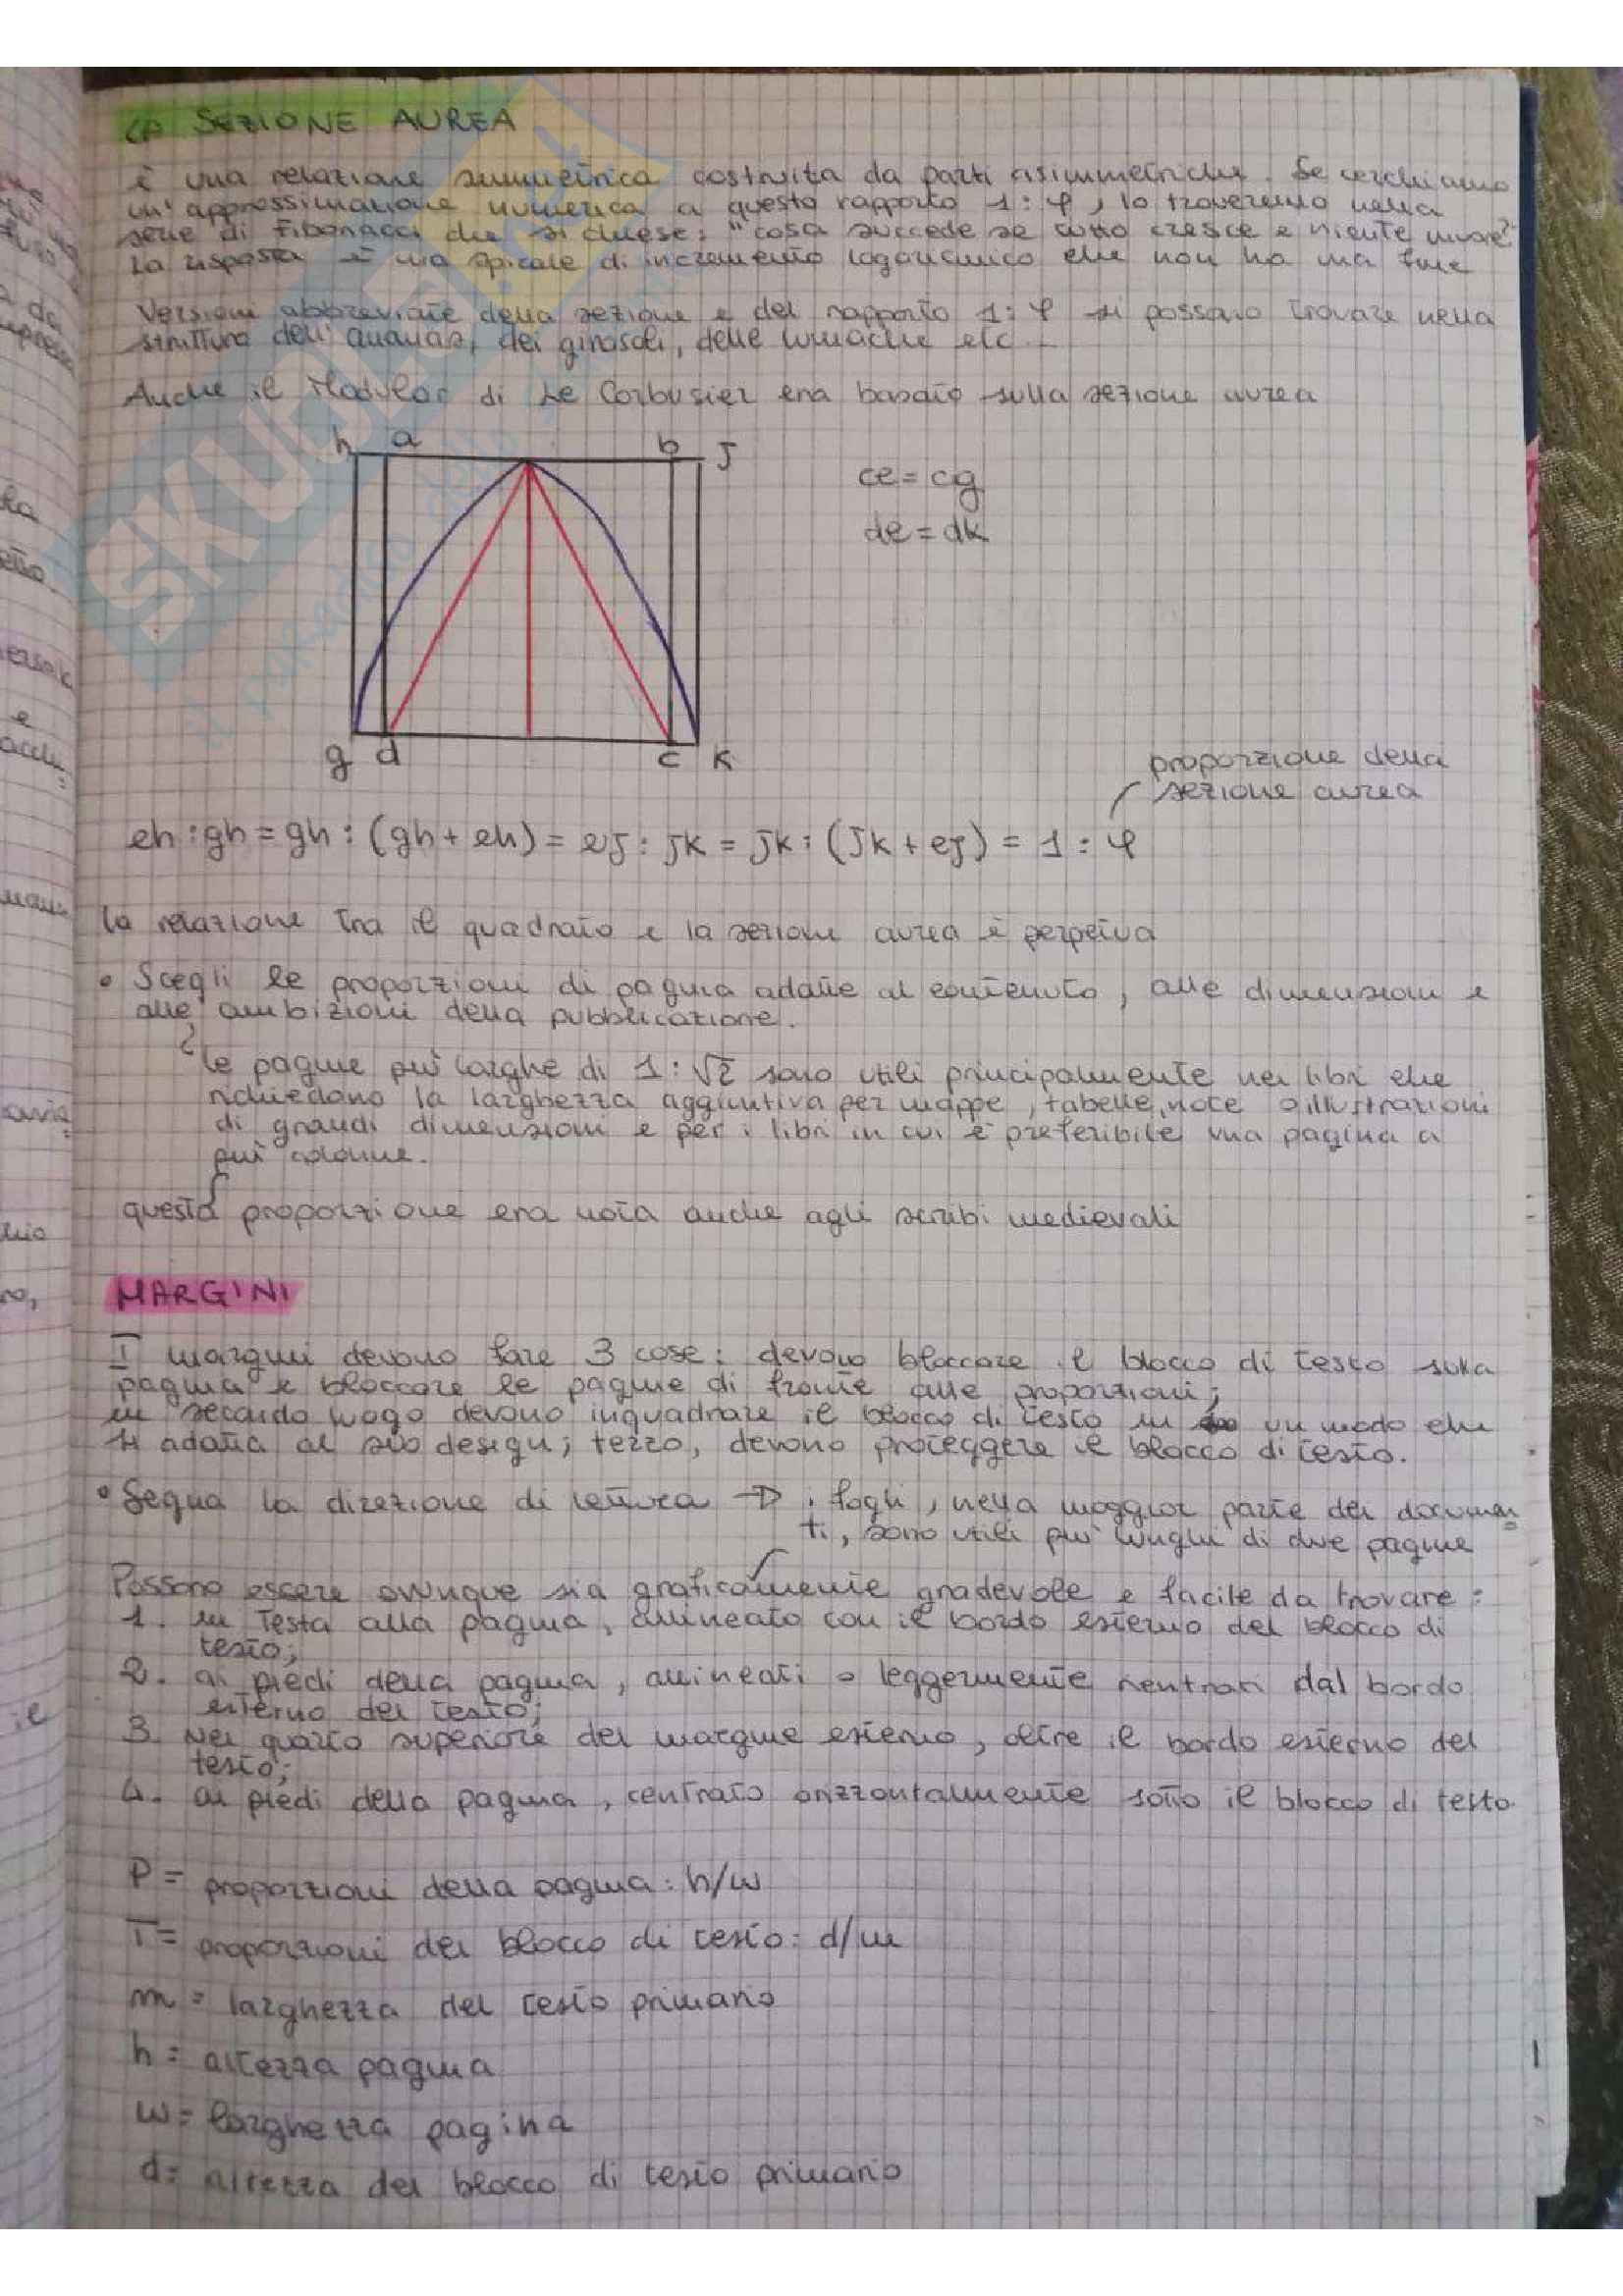 LA SEZIONE AUREA
è una relazione simmetrica costruita da parti asimmetriche. Se cerchiamo
un'approssimazione numerica a questo rapporto 1:φ, lo troveremo nella
serie di Fibonacci che si chiese: "cosa succede se tutto cresce e niente muore?"
La risposta è una spirale di incremento logaritmico che non ha mai fine
Versioni abbreviate della sezione e del rapporto 1:φ si possono trovare nella
struttura dell'ananas, dei girasoli, delle lumache etc...
Anche il Modulor di Le Corbusier era basato sulla sezione aurea
h a b J
ce = cg
de = dk
g d c k
proporzione della
sezione aurea
eh : gh = gh : (gh + eh) = ej : jk = jk : (jk + ej) = 1 : φ
la relazione tra il quadrato e la sezione aurea è perpetua
• Scegli le proporzioni di pagina adatte al contenuto, alle dimensioni e
alle ambizioni della pubblicazione.
le pagine più larghe di 1:√2 sono utili principalmente nei libri che
richiedono la larghezza aggiuntiva per mappe, tabelle, note o illustrazioni
di grandi dimensioni e per i libri in cui è preferibile una pagina a
più colonne.
questa proporzione era nota anche agli scribi medievali
MARGINI
I margini devono fare 3 cose: devono bloccare il blocco di testo sulla
pagina e bloccare le pagine di fronte alle proporzioni;
in secondo luogo devono inquadrare il blocco di testo in un modo che
si adatta al suo design; terzo, devono proteggere il blocco di testo.
• Segua la direzione di lettura → i fogli, nella maggior parte dei documen
ti, sono utili più lunghi di due pagine
Possono essere ovunque sia graficamente gradevole e facile da trovare:
1. in testa alla pagina, allineato con il bordo esterno del blocco di
testo;
2. ai piedi della pagina, allineati o leggermente rientrati dal bordo
esterno del testo;
3. Nel quarto superiore del margine esterno, oltre il bordo esterno del
testo;
4. ai piedi della pagina, centrato orizzontalmente sotto il blocco di testo.
P = proporzioni della pagina: h/w
T = proporzioni del blocco di testo: d/m
m = larghezza del testo primario
h = altezza pagina
w = larghezza pagina
d = altezza del blocco di testo primario
SKUOLA